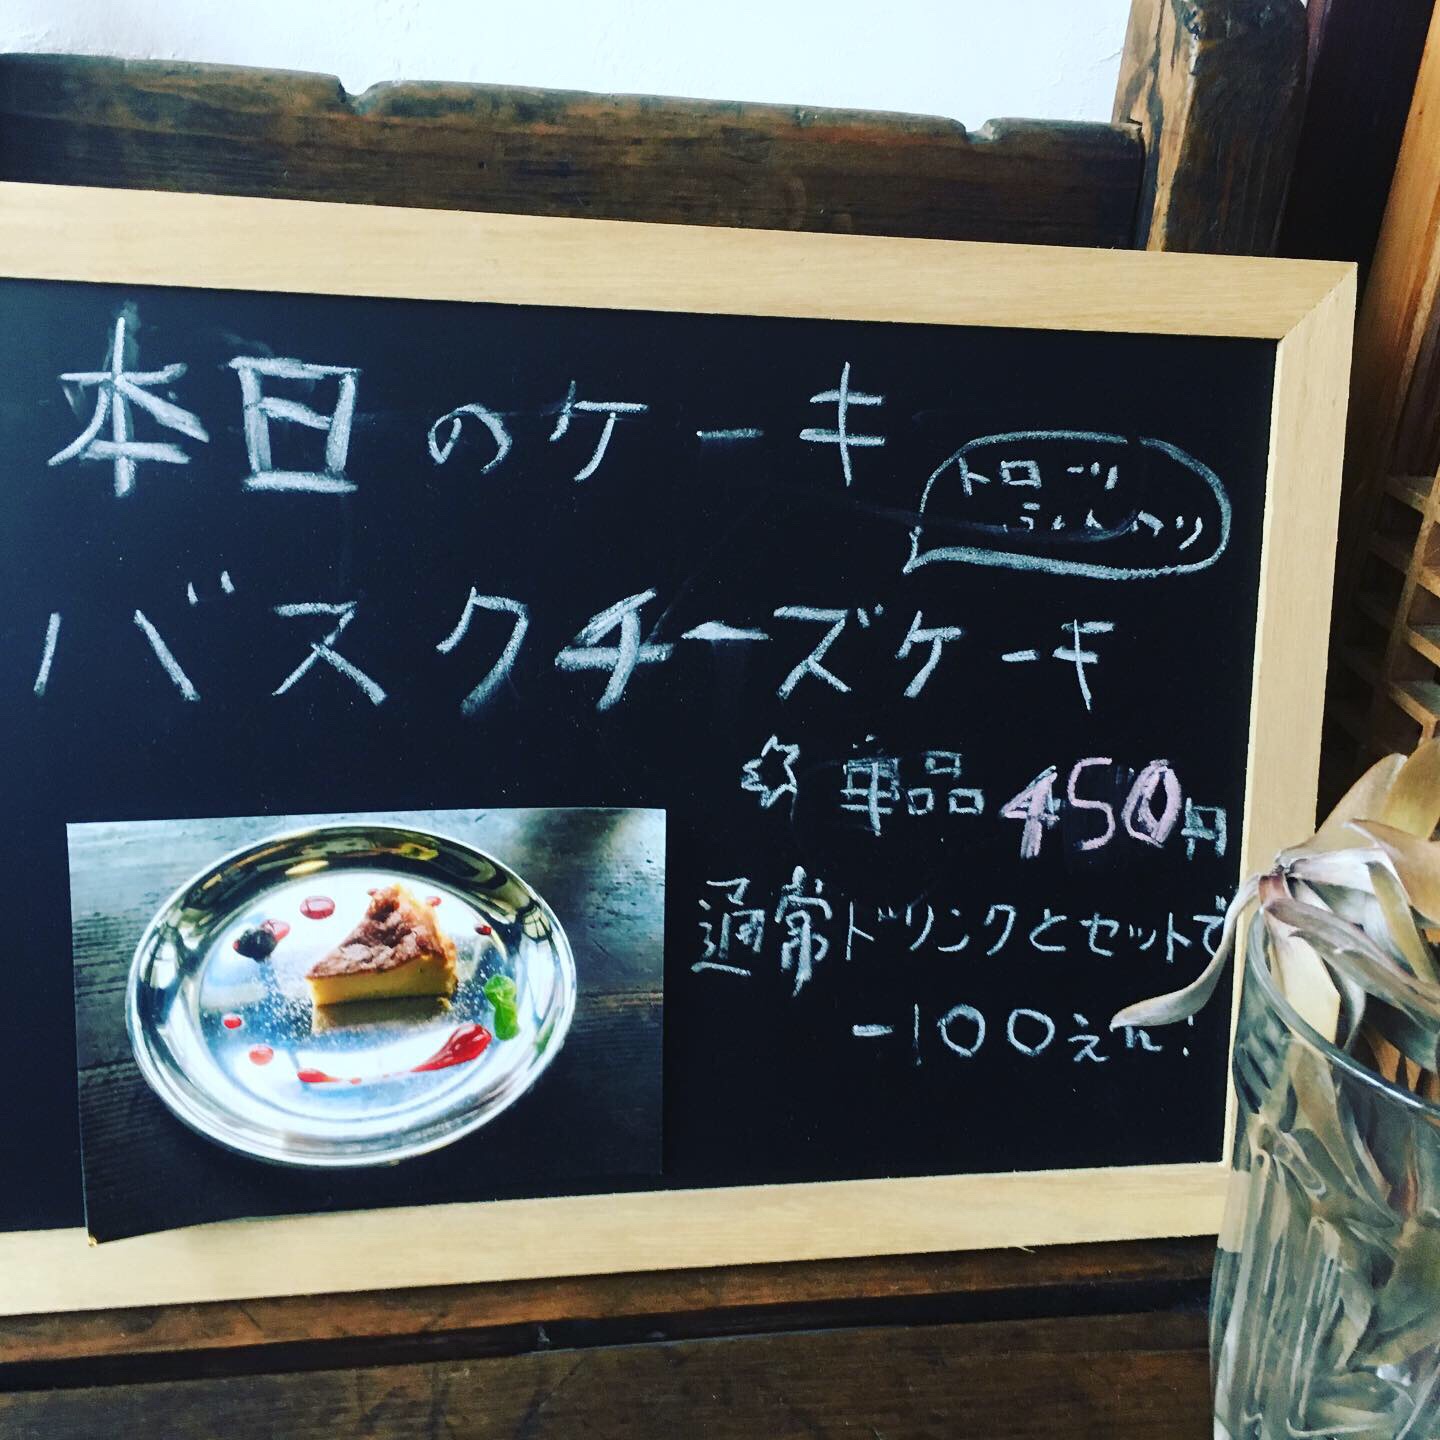 本日のケーキ
トローリ
ふんわり
バスクチーズケーキ
☆単品450円
通常ドリンクとセットで
-100えん!